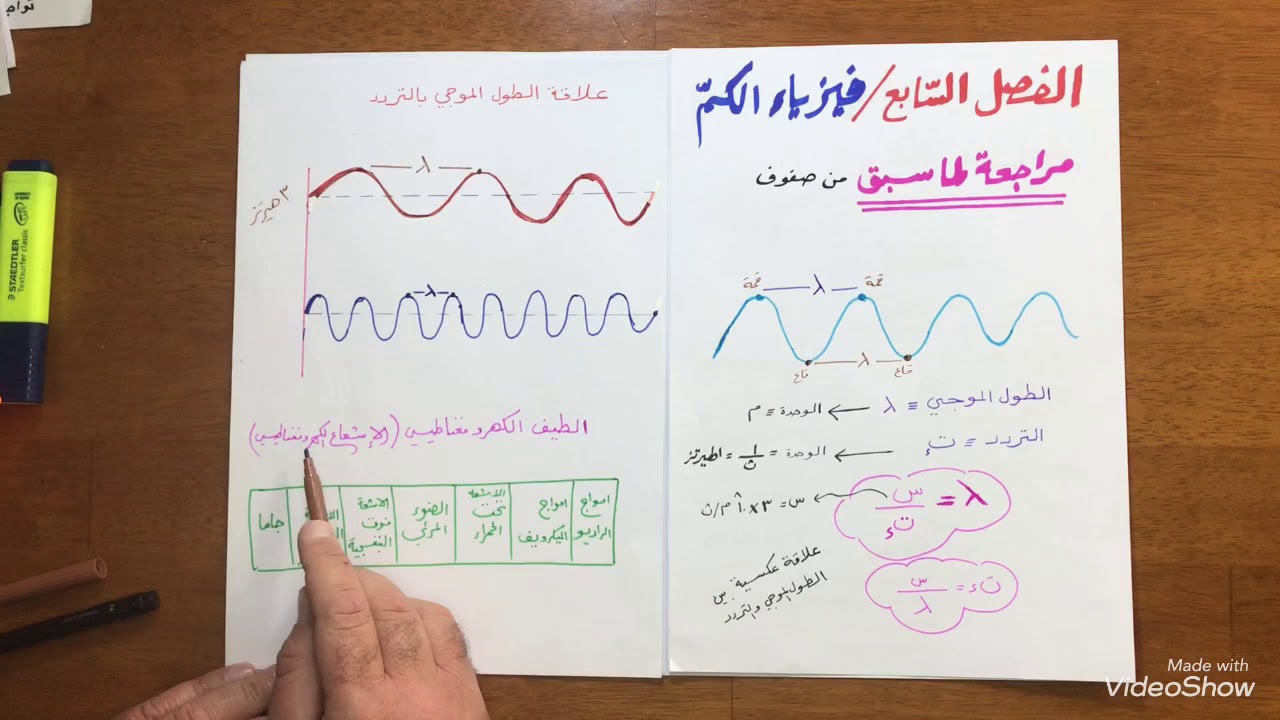 الفصل السّابع/فيزياء الكمّ
مراجعة لما سبق من صفوف
قمة λ قمة
قاع λ قاع
الطول الموجي ≡ λ ← الوحدة ≡ م
التردد ≡ تء ← الوحدة = ١/ث = ١هيرتز
λ = س/تء
س = ٣×١٠^٨ م/ث
تء = س/λ
علاقة عكسية بين
الطول الموجي والتردد
علاقة الطول الموجي بالتردد
λ
٣ هيرتز
λ
الطيف الكهرومغناطيسي (الإشعاع الكهرومغناطيسي)
امواج الراديو
امواج الميكرويف
الاشعة تحت الحمراء
الضوء المرئي
الاشعة فوق البنفسجية
جاما
STAEDTLER
Textsurfer classic
Made with
VideoShow